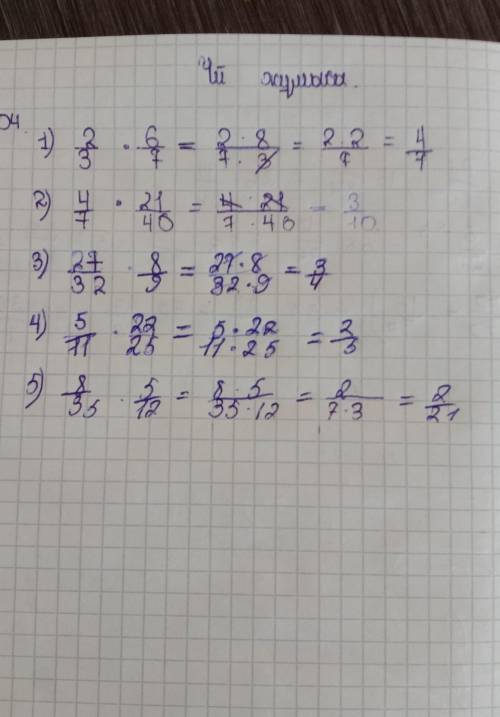 Үй жұмысы.
04.
1) 2/3 · 6/7 = 2 · 8/7 · 3 = 2 · 2/7 = 4/7
2) 4/7 · 21/40 = 4 · 21/7 · 40 = 3/10
3) 27/32 · 8/9 = 27 · 8/32 · 9 = 3/4
4) 5/11 · 22/25 = 5 · 22/11 · 25 = 2/5
5) 8/35 · 5/12 = 8 · 5/35 · 12 = 2/7 · 3 = 2/21